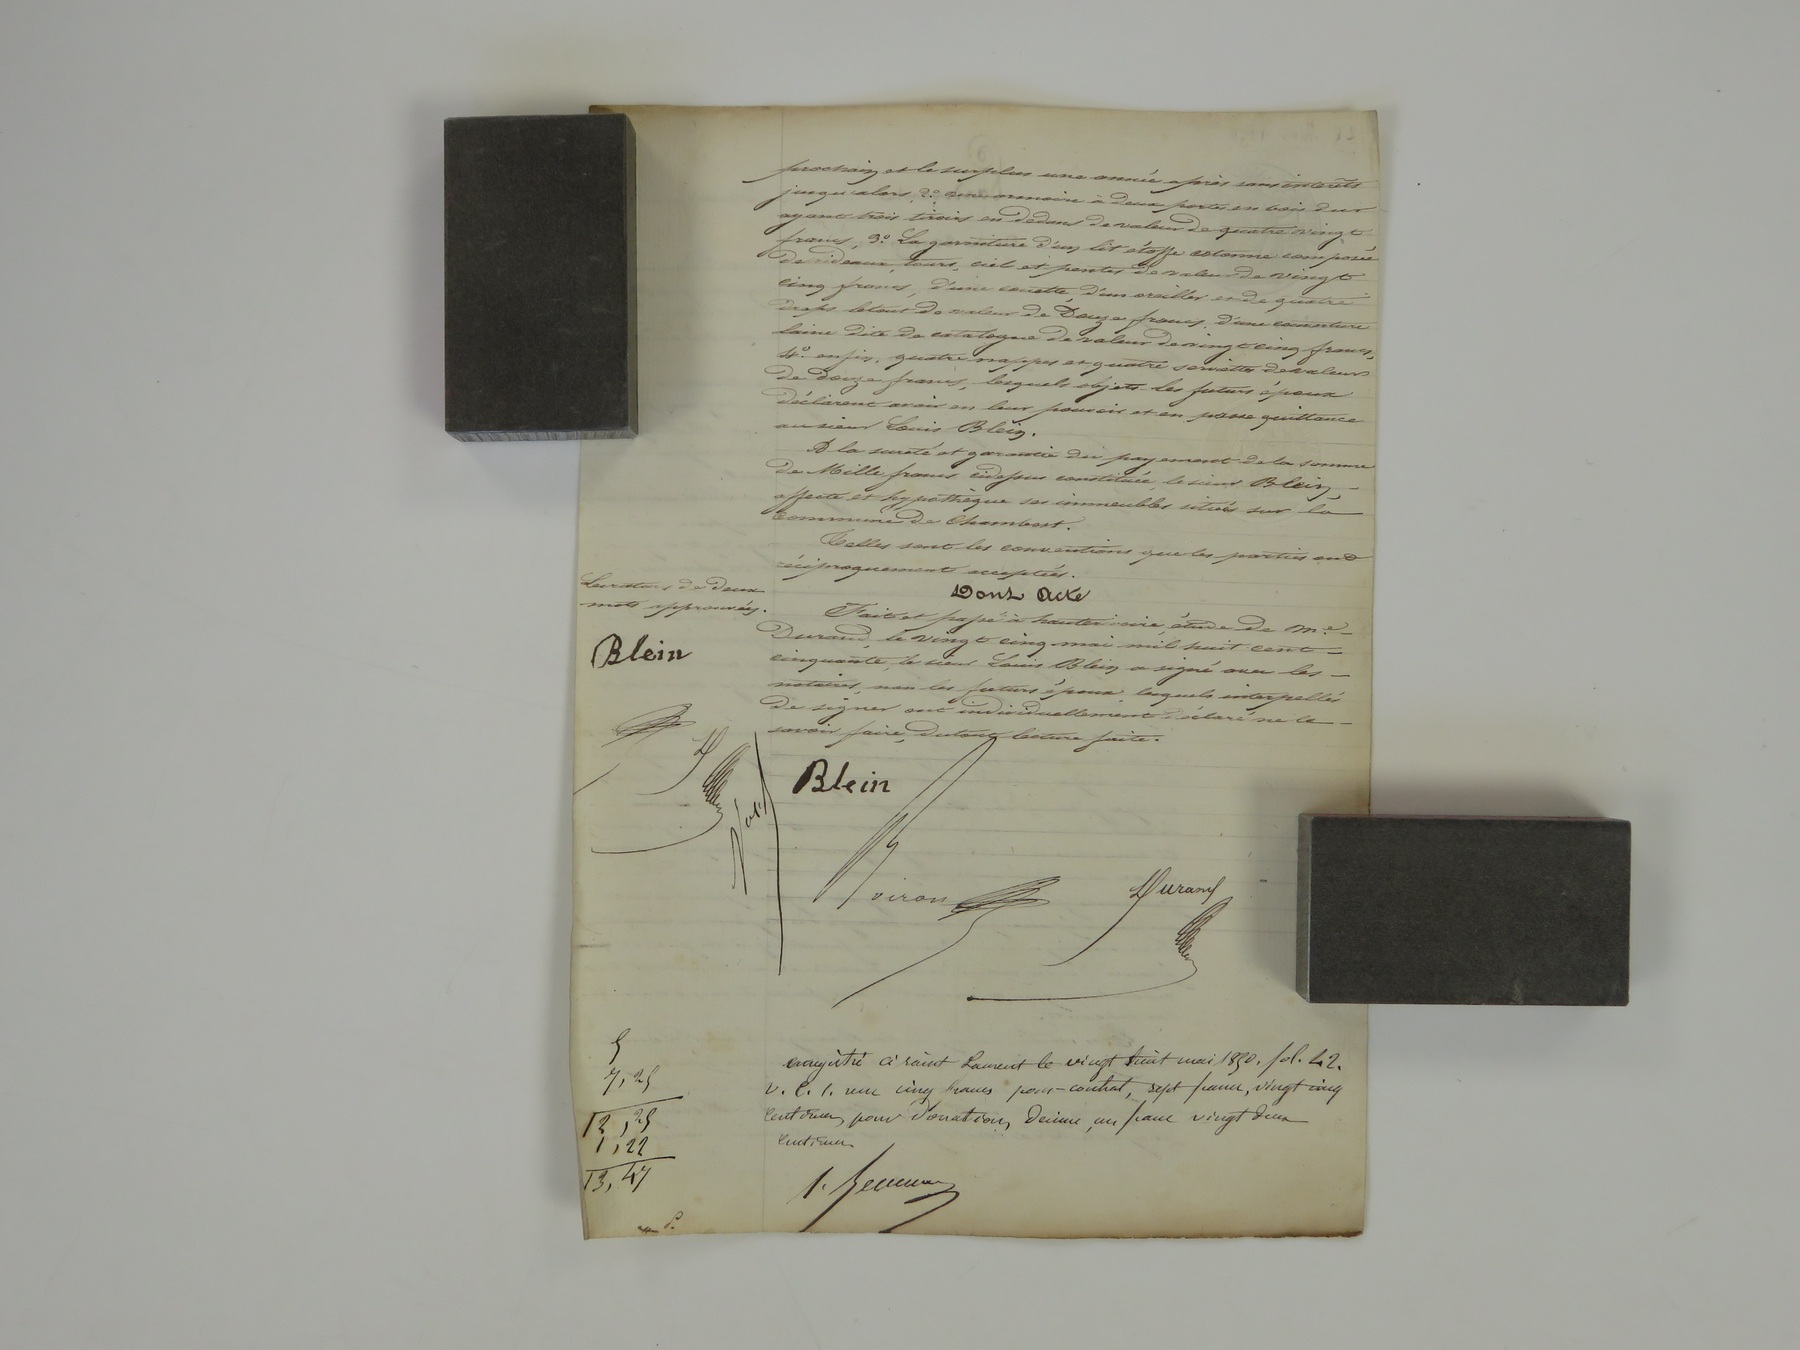 prochain et le surplus une année après sans intérêts
jusqu'alors, 2° une armoire à deux portes en bois dur
ayant trois tiroirs en dedans de valeur de quatre vingt
francs, 3° La garniture d'un lit étoffe cotonne composée
de rideaux, tours, ciel et pentes de valeur de vingt
cinq francs, d'une couette d'un oreiller et de quatre
draps le tout de valeur de Douze francs, d'une couverture
laine dite de catalogne de valeur de vingt cinq francs,
4° enfin, quatre nappes et quatre serviettes de valeur
de douze francs, lesquels objets les futurs époux
déclarent avoir en leur pouvoir et en passe quittance
au sieur Louis Blein.
A la sureté et garantie du payement de la somme
de Mille francs cidessus constituée, le sieur Blein,
affecte et hypothèque ses immeubles situés sur la
commune de Chambost.
Telles sont les conventions que les parties ont
réciproquement acceptées.
Dont Acte
de deux
mots approuvés.
Fait et passé à hauterivoire, étude de Me
Durand, le vingt cinq mai mil huit cent
cinquante, le sieur Louis Blein a signé avec les
notaires, non les futurs époux, lesquels interpellés
de signer ont individuellement déclaré ne le
savoir faire, du tout lecture faite.
Blein
Blein
Voiron
Durand
enregistré à saint Laurent le vingt huit mai 1850. fol. 42.
v. C. 1. reçu cinq francs pour contrat, sept francs, vingt cinq
centimes pour donation, décime, un franc vingt deux
centimes
5
7,25
12,25
1,22
13,47